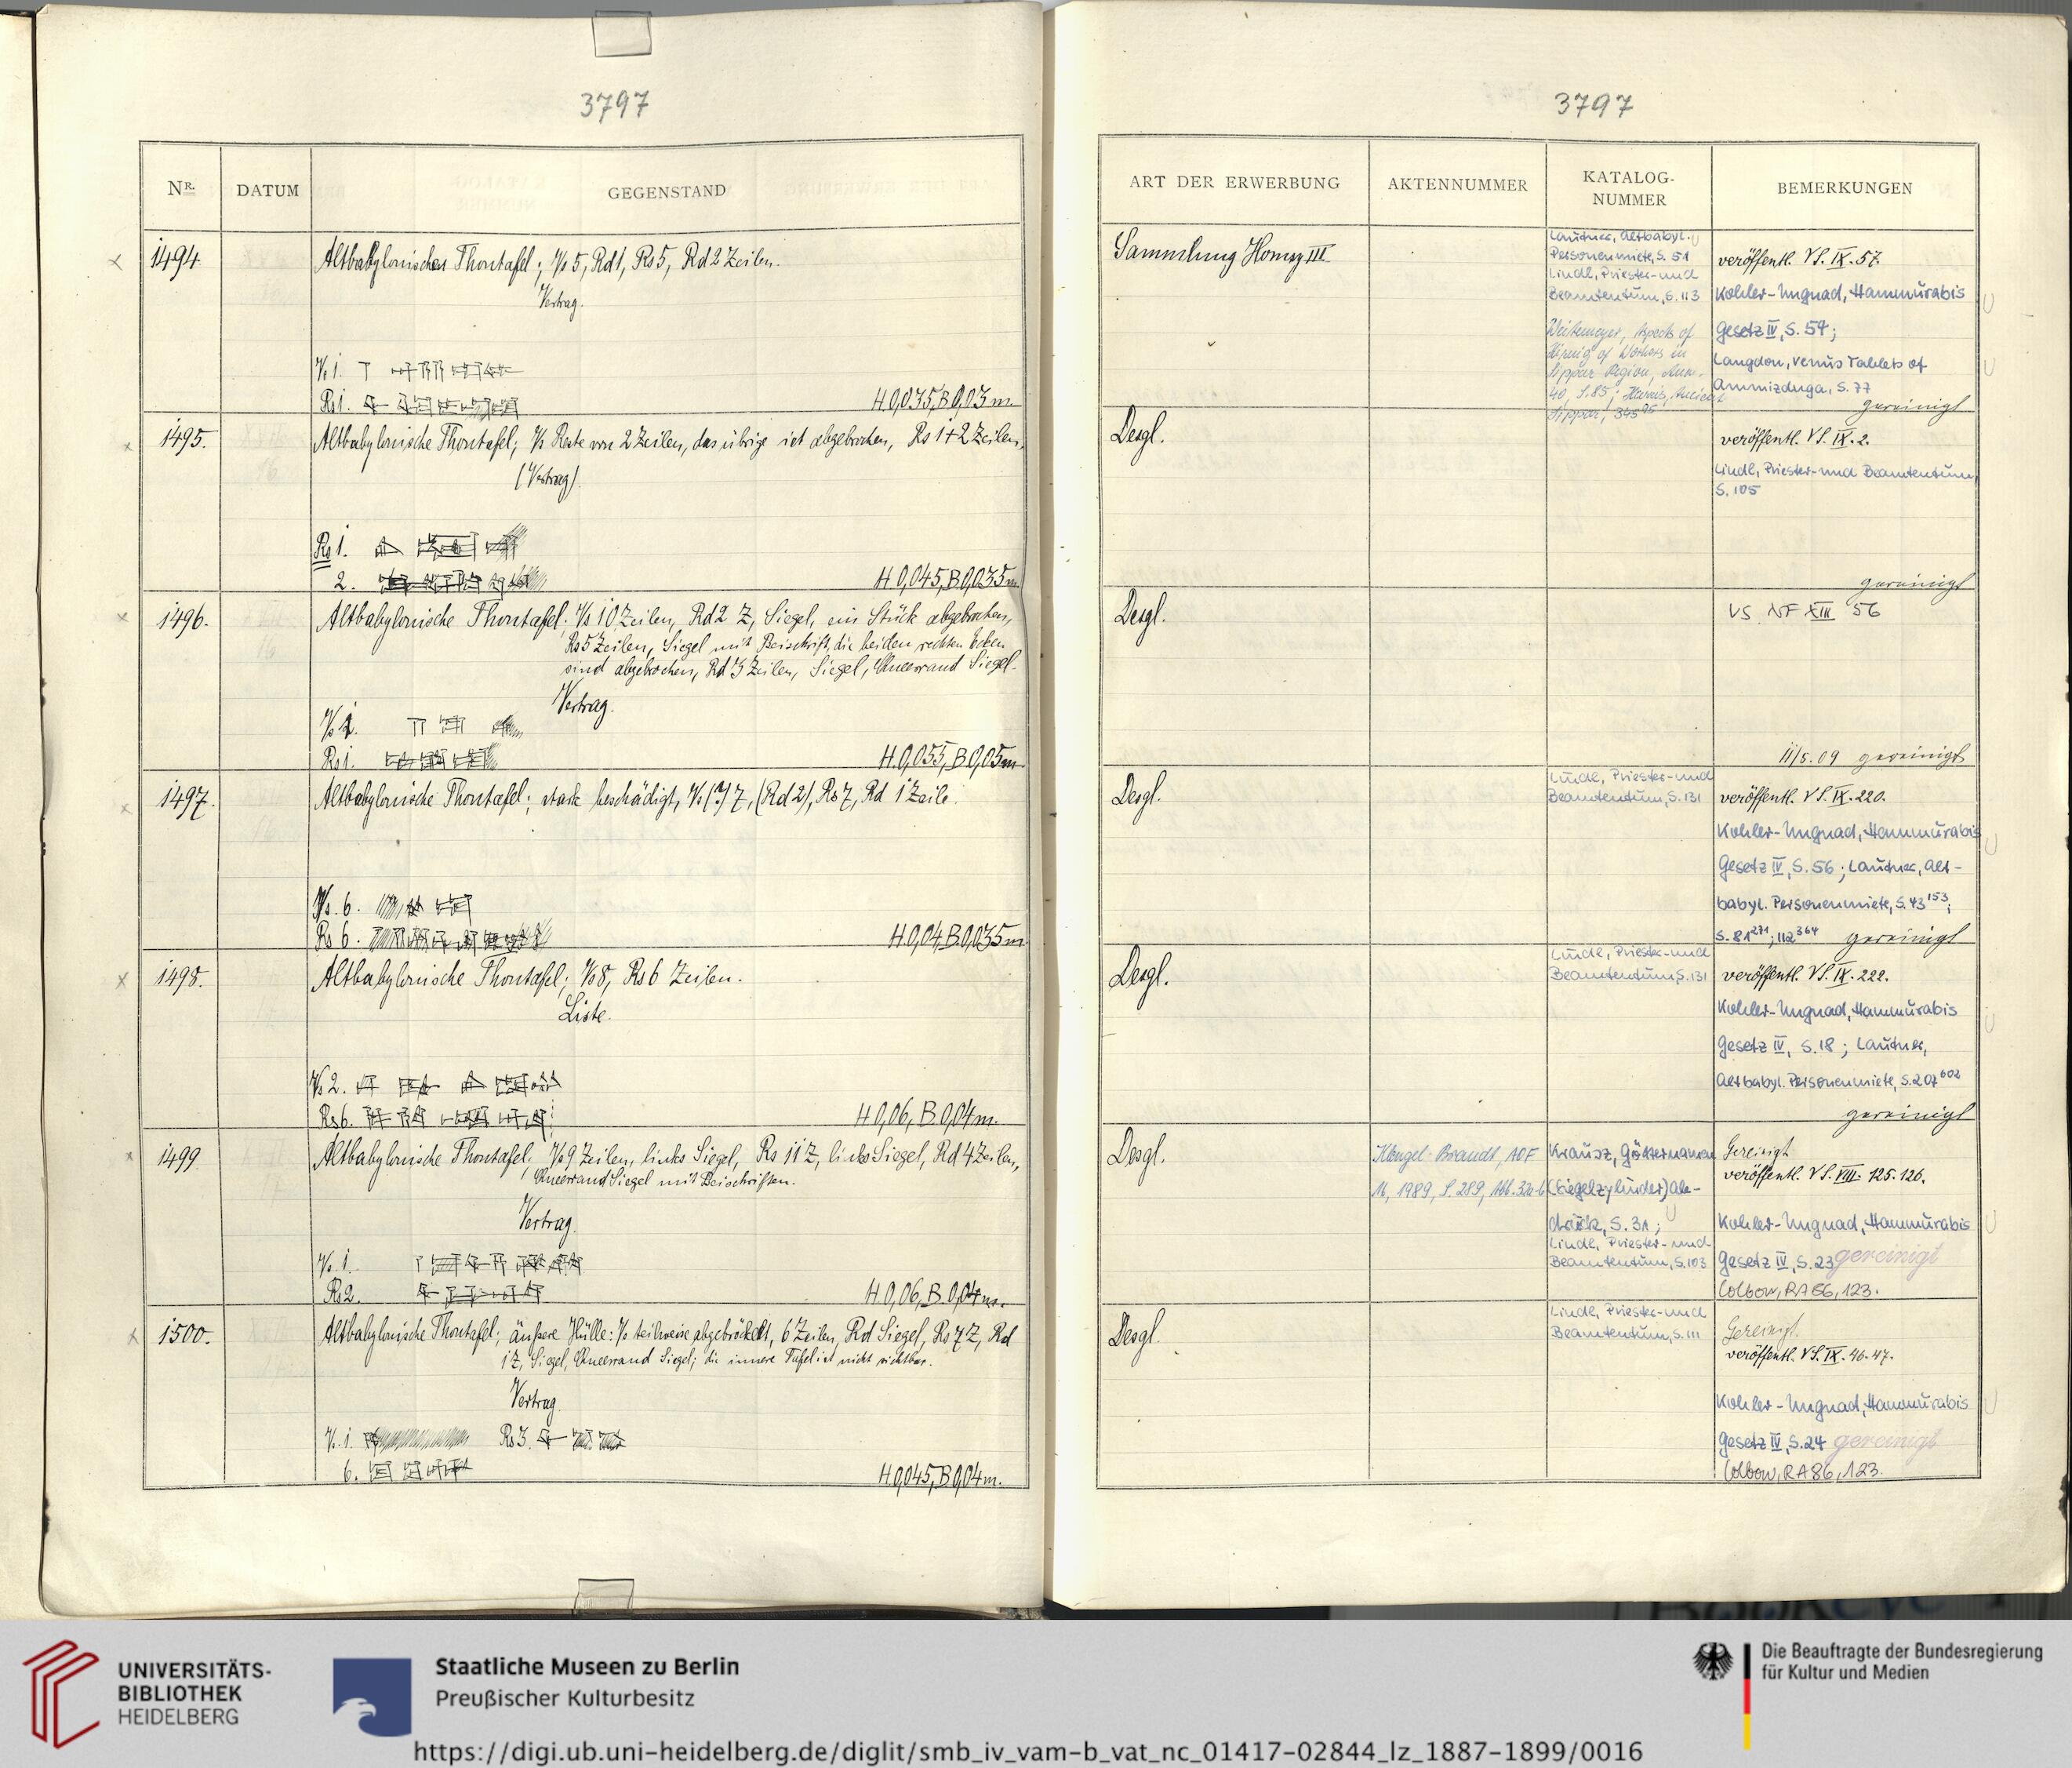 3797
Nr.
DATUM
GEGENSTAND
1494
Altbabylonisches Thontafel; Vs 5, Rd 1, Rs 5, Rd 2 Zeilen.
Vertrag.
Vs 1.
Rs 1.
H. 0,035, B 0,03 m
1495.
Altbabylonische Thontafel; Vs Reste von 2 Zeilen, das übrige ist abgebrochen, Rs 1+2 Zeilen,
(Vertrag)
Rs 1.
2.
H. 0,045, B. 0,035 m
1496.
Altbabylonische Thontafel. Vs 10 Zeilen, Rd 2 Z, Siegel, ein Stück abgebrochen,
Rs 5 Zeilen, Siegel mit Beischrift, die beiden rechten Ecken
sind abgebrochen, Rd 3 Zeilen, Siegel, Querrand Siegel.
Vertrag.
Vs 2.
Rs 1.
H. 0,055, B. 0,05 m
1497.
Altbabylonische Thontafel; stark beschädigt, Vs (?) 7, (Rd 2), Rs 7, Rd 1 Zeile.
Vs. 6.
Rs 6.
H. 0,04, B. 0,035 m
1498.
Altbabylonische Thontafel; Vs 8, Rs 6 Zeilen.
Liste.
Vs 2.
Rs 6.
H 0,06, B. 0,04 m.
1499
Altbabylonische Thontafel; Vs 9 Zeilen, links Siegel, Rs 11 Z, links Siegel, Rd 4 Zeilen,
Querrand Siegel mit Beischriften.
Vertrag.
Vs. 1.
Rs 2.
H. 0,06, B. 0,04 m.
1500.
Altbabylonische Thontafel; äußere Hülle: Vs teilweise abgebröckelt, 6 Zeilen, Rd Siegel, Rs 7 Z, Rd
1 Z, Siegel, Querrand Siegel; die innere Tafel ist nicht sichtbar.
Vertrag.
Vs. 1. Rs 3.
6.
H. 0,045, B. 0,04 m.
3797
ART DER ERWERBUNG
AKTENNUMMER
KATALOG-
NUMMER
BEMERKUNGEN
Sammlung Homsy III
Lautner, Altbabyl.
Personenmiete, S. 51
Lindl, Priester-und
Beamtentum, S. 113
Weitemeyer, Aspects of
Hiring of Workers in
Sippar Region,
40, S. 85; Harris, Ancient
Sippar,
veröffentl. VS. IX. 57.
Kohler-Ungnad, Hammurabis
Gesetz IV, S. 54;
Langdon, Venus Tablets of
Ammizduga, S. 77
gereinigt
Desgl.
veröffentl. VS. IX. 2.
Lindl, Priester-und Beamtentum,
S. 105
gereinigt
Desgl.
VS NF XIII 56
11/5.09 gereinigt
Desgl.
Lindl, Priester-und
Beamtentum, S. 131
veröffentl. VS. IX. 220.
Kohler-Ungnad, Hammurabis
Gesetz IV, S. 56; Lautner, Alt-
babyl. Personenmiete, S. 43 153;
S. 81 271; 112 364 gereinigt
Desgl.
Lindl, Priester-und
Beamtentum, S. 131
veröffentl. VS. IX. 222.
Kohler-Ungnad, Hammurabis
Gesetz IV, S. 18; Lautner,
Altbabyl. Personenmiete, S. 207 602
gereinigt
Desgl.
Klengel-Brandt, AOF
16, 1989, S. 289, Abb. 32a-b
Krausz, Götternamen
(Siegelzylinder) Ab-
drück, S. 31;
Lindl, Priester-und
Beamtentum, S. 103
Gereinigt
veröffentl. VS. VIII. 125. 126.
Kohler-Ungnad, Hammurabis
Gesetz IV, S. 23 gereinigt
Colbow, RA 86, 123.
Desgl.
Lindl, Priester-und
Beamtentum, S. 111
Gereinigt.
veröffentl. VS. IX. 46-47.
Kohler-Ungnad, Hammurabis
Gesetz IV, S. 24 gereinigt
Colbow, RA 86, 123.
UNIVERSITÄTS-
BIBLIOTHEK
HEIDELBERG
Staatliche Museen zu Berlin
Preußischer Kulturbesitz
Die Beauftragte der Bundesregierung
für Kultur und Medien
https://digi.ub.uni-heidelberg.de/diglit/smb_iv_vam-b_vat_nc_01417-02844_lz_1887-1899/0016